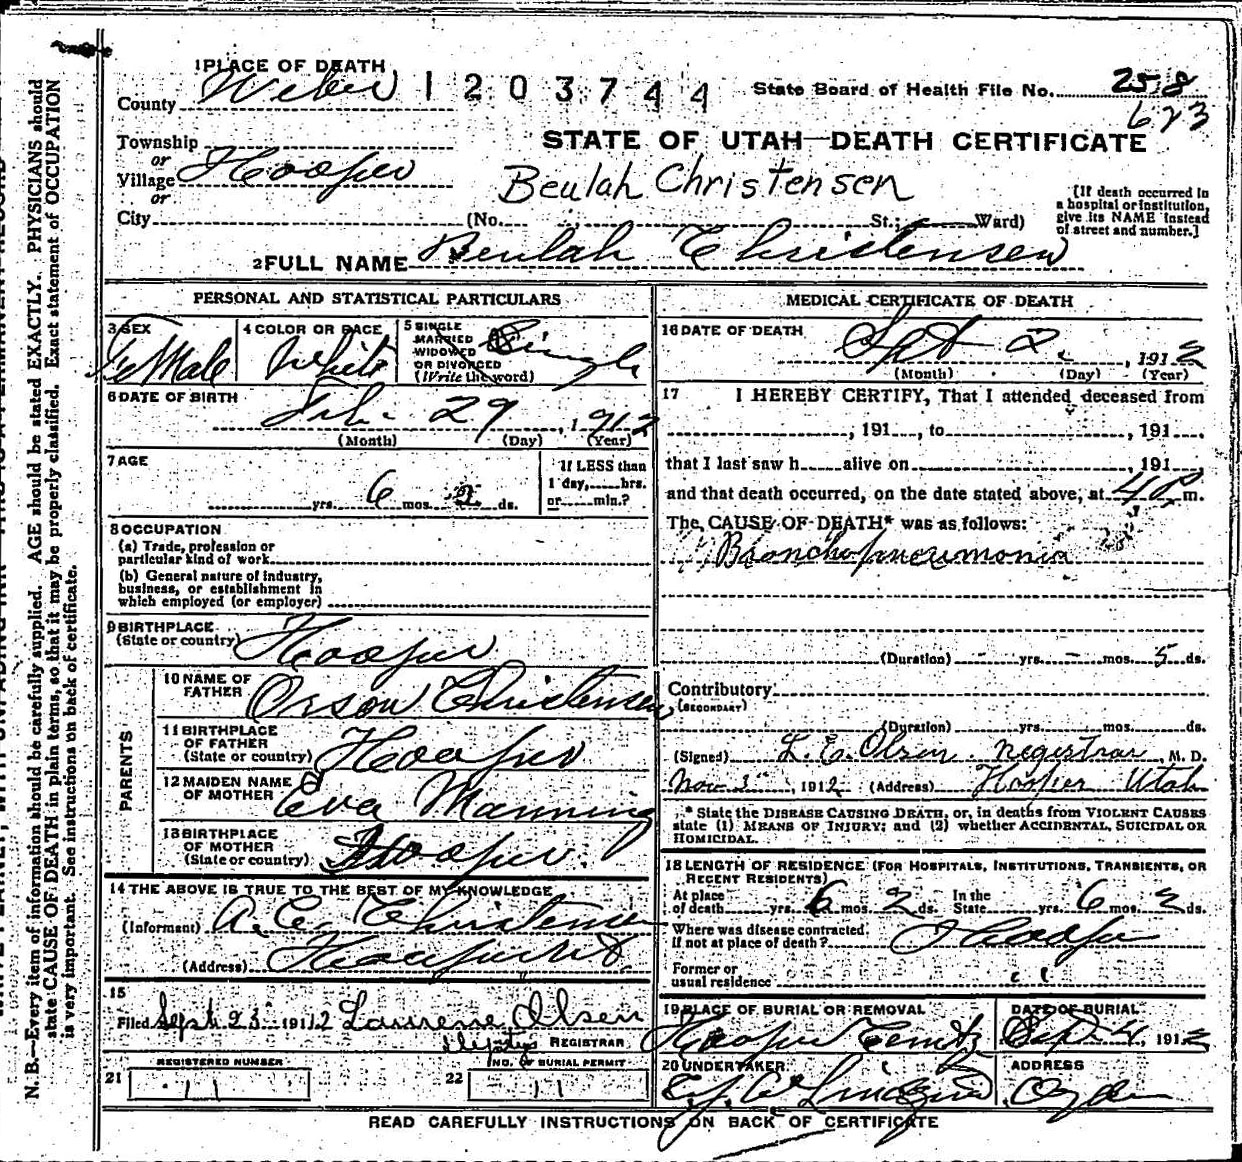 1 PLACE OF DEATH
County Weber 1203744 State Board of Health File No. 258
623
Township
or
Village Hooper
or
STATE OF UTAH—DEATH CERTIFICATE
Beulah Christensen
City (No. St.; Ward)
[If death occurred in
a hospital or institution,
give its NAME instead
of street and number.]
2 FULL NAME Beulah Christensen
PERSONAL AND STATISTICAL PARTICULARS
3 SEX FeMale
4 COLOR OR RACE White
5 SINGLE
MARRIED
WIDOWED
OR DIVORCED
(Write the word) Single
6 DATE OF BIRTH
Feb. 29, 1912
(Month) (Day) (Year)
7 AGE
yrs. 6 mos. 2 ds.
If LESS than
1 day, hrs.
or min.?
8 OCCUPATION
(a) Trade, profession or
particular kind of work
(b) General nature of industry,
business, or establishment in
which employed (or employer)
9 BIRTHPLACE
(State or country) Hooper
PARENTS
10 NAME OF
FATHER Orson Christensen
11 BIRTHPLACE
OF FATHER
(State or country) Hooper
12 MAIDEN NAME
OF MOTHER Eva Manning
13 BIRTHPLACE
OF MOTHER
(State or country) Hooper.
14 THE ABOVE IS TRUE TO THE BEST OF MY KNOWLEDGE
(Informant) A. C. Christensen
(Address) Hooper Ut.
15
Filed Sept 23 1912 Laurense Olsen
Deputy REGISTRAR
REGISTERED NUMBER
21 11
NO. OF BURIAL PERMIT
22 11
MEDICAL CERTIFICATE OF DEATH
16 DATE OF DEATH
Sept 2, 1912
(Month) (Day) (Year)
17 I HEREBY CERTIFY, That I attended deceased from
, 191, to , 191,
that I last saw h alive on , 191
and that death occurred, on the date stated above, at 4 P m.
The CAUSE OF DEATH* was as follows:
Bronchopneumonia
(Duration) - yrs. - mos. 5 ds.
Contributory
(SECONDARY)
(Duration) yrs. mos. ds.
(Signed) L. E. Olsen. Registrar, M. D.
Nov 1912 (Address) Hooper Utah
* State the DISEASE CAUSING DEATH, or, in deaths from VIOLENT CAUSES
state (1) MEANS OF INJURY; and (2) whether ACCIDENTAL, SUICIDAL OR
HOMICIDAL.
18 LENGTH OF RESIDENCE (FOR HOSPITALS, INSTITUTIONS, TRANSIENTS, OR
RECENT RESIDENTS)
At place
of death yrs. 6 mos. 2 ds.
In the
State yrs. 6 mos. 2 ds.
Where was disease contracted,
if not at place of death? Hooper
Former or
usual residence "
19 PLACE OF BURIAL OR REMOVAL
Hooper
DATE OF BURIAL
Sept 4, 1912
20 UNDERTAKER
ADDRESS
Ogden
READ CAREFULLY INSTRUCTIONS ON BACK OF CERTIFICATE
N. B.—Every item of information should be carefully supplied. AGE should be stated EXACTLY. PHYSICIANS should
state CAUSE OF DEATH in plain terms, so that it may be properly classified. Exact statement of OCCUPATION
is very important. See instructions on back of certificate.